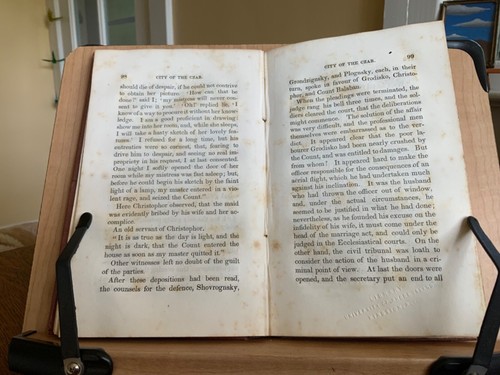 98 CITY OF THE CZAR.
should die of despair, if he could not contrive
to obtain her picture. 'How can that be
done?' said I; 'my mistress will never con-
sent to give it you.' 'Oh!' replied he, 'I
know of a way to proceed without her know-
ledge. I am a good proficient in drawing;
show me into her room, and, while she sleeps,
I will take a hasty sketch of her lovely fea-
tures.' I refused for a long time, but his
entreaties were so earnest, that, fearing to
drive him to despair, and seeing no real im-
propriety in his request, I at last consented.
One night I softly opened the door of her
room while my mistress was fast asleep; but,
before he could begin his sketch by the faint
light of a lamp, my master entered in a vio-
lent rage, and seized the Count."
Here Christopher observed, that the maid
was evidently bribed by his wife and her ac-
complice.
An old servant of Christopher.
"It is as true as the day is light, and the
night is dark, that the Count entered the
house as soon as my master quitted it."
Other witnesses left no doubt of the guilt
of the parties.
After these depositions had been read,
the counsels for the defence, Shovrogusky,
CITY OF THE CZAR. 99
and Plognsky, each, in their
turn, spoke in favour of Grodisko, Christo-
pher, and Count Balaban.
When the pleadings were terminated, the
judge rang his bell three times, and the sol-
diers cleared the court, that the deliberations
might commence. The solution of the affair
was very difficult, and the professional men
themselves were embarrassed as to the ver-
dict. It appeared clear that the poor la-
bourer Grodisko had been nearly crushed by
the Count, and was entitled to damages. But
from whom? It appeared hard to make the
officer responsible for the consequences of an
aerial flight, which he had undertaken much
against his inclination. It was the husband
who had thrown the officer out of window,
and, under the actual circumstances, he
seemed to be justified in what he had done;
nevertheless, as he founded his excuse on the
infidelity of his wife, it must come under the
head of the marriage act, and could only be
judged in the Ecclesiastical courts. On the
other hand, the civil tribunal was loath to
consider the action of the husband in a cri-
minal point of view. At last the doors were
opened, and the secretary put an end to all